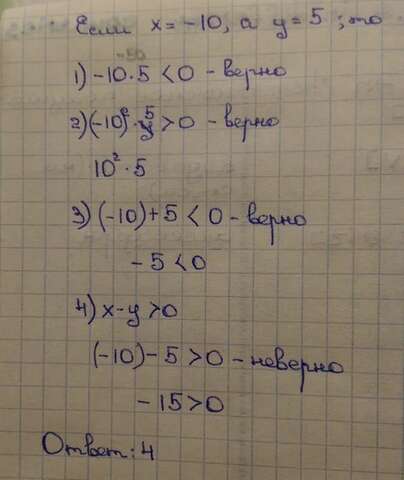 Если x = -10, а y = 5, то
-50
1) -10·5 < 0 - верно
2) (-10)²·y⁵ > 0 - верно
10²·5
3) (-10)+5 < 0 - верно
-5 < 0
4) x-y > 0
(-10)-5 > 0 - неверно
-15 > 0
Ответ: 4